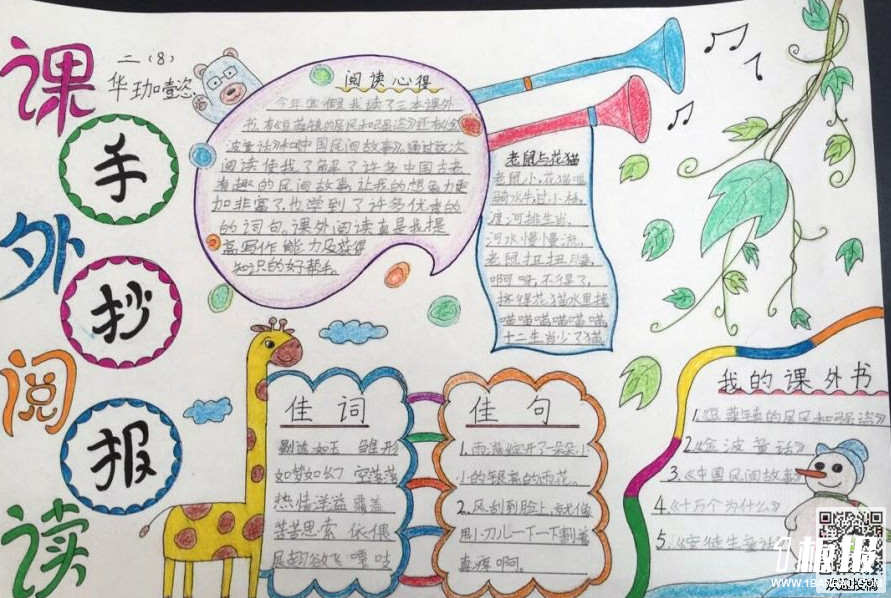 课外阅读
手抄报
二(8)
华珈懿
阅读心得
今年寒假我读了三本课外
书,有《豆蔻镇的居民和强盗》还有《金
波童话》和《中国民间故事》。通过这次
阅读使我了解了许多中国古老
有趣的民间故事,让我的想象力更
加丰富了,也学到了许多优美的
的词句,课外阅读真是我提
高写作能力及获得
知识的好帮手。
老鼠与花猫
老鼠小,花猫
骑水牛过小林,
渡河排生肖,
河水慢慢流,
老鼠扭扭腰,
啊呀,不得了,
挤得花猫水里掉
喵喵喵喵喵喵,
十二生肖少了猫
佳词
剔透如玉 雏形
如梦如幻 空荡荡
热情洋溢 覆盖
苦苦思索 依偎
展翅欲飞
佳句
1.雨滴绽开了朵朵小
小的银亮的雨花。
2.风刮到脸上,就像
用小刀儿一下一下割着
直疼啊。
我的课外书
1.《豆蔻镇的居民和强盗》
2.《金波童话》
3.《中国民间故事》
4.《十万个为什么》
5.《安徒生童话》
1板报
WWW.1BANBAO.COM
欢迎投稿